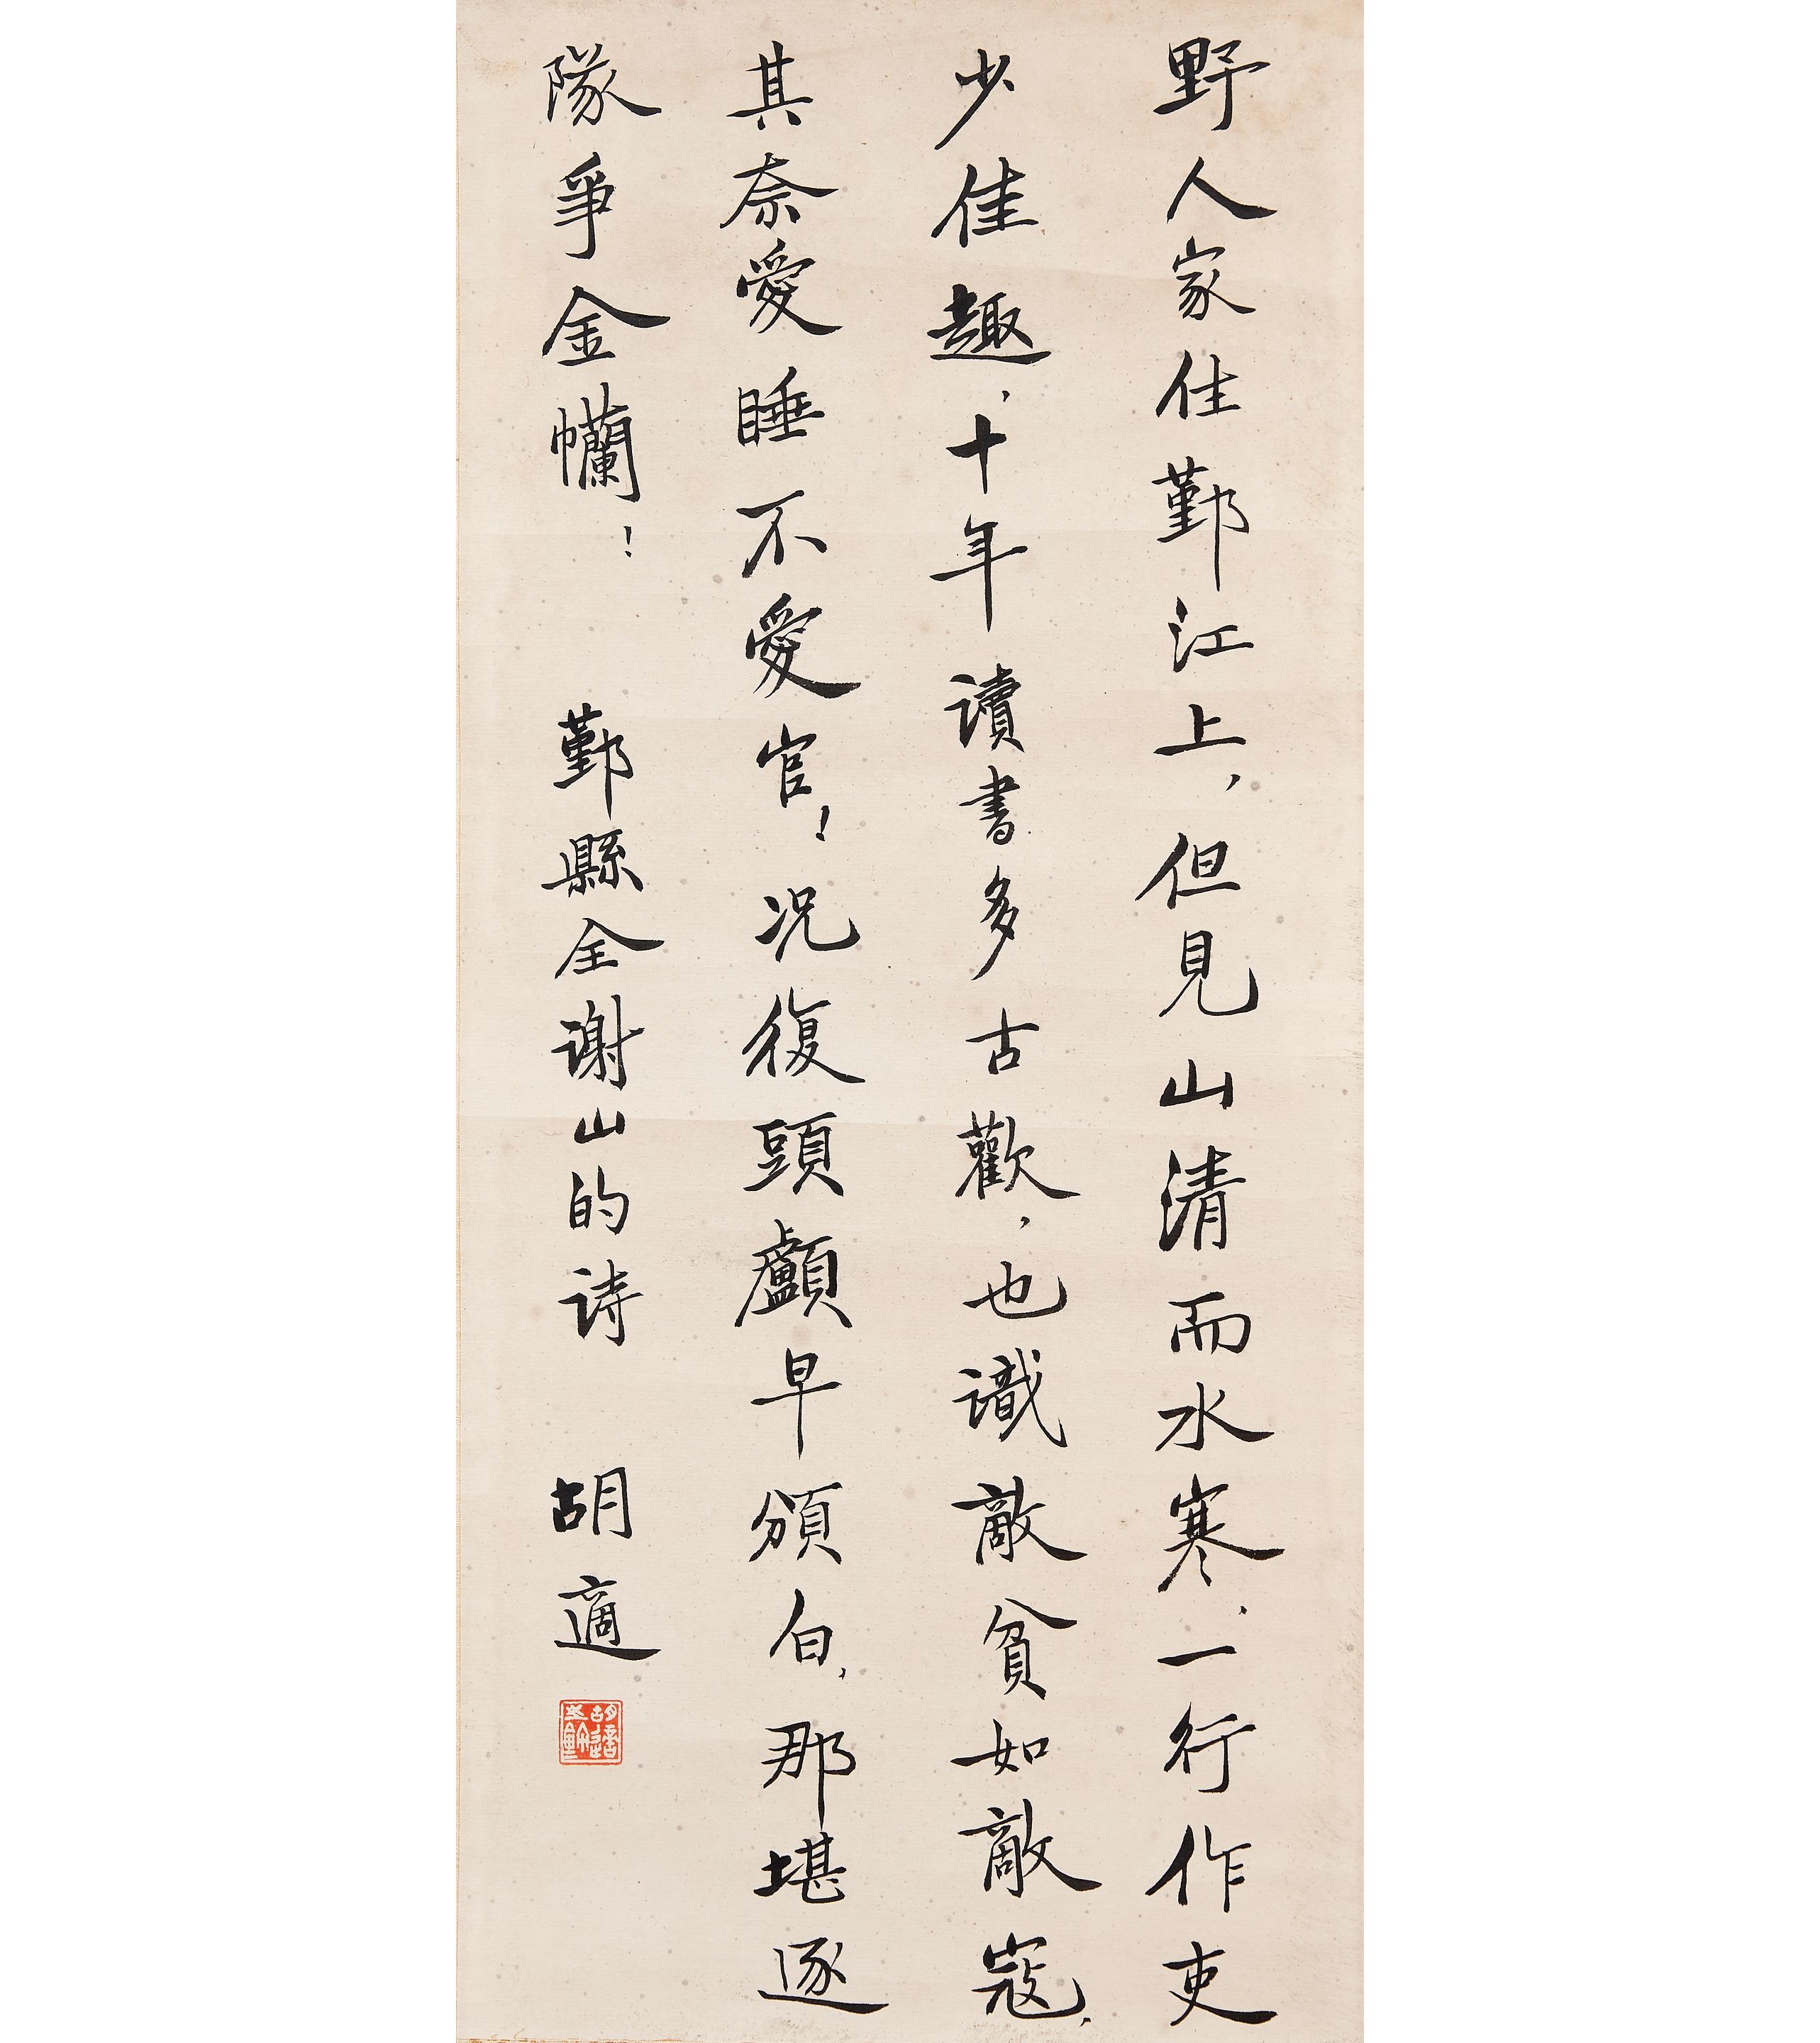 野人家住鄞江上,但見山清而水寒.一行作吏
少佳趣,十年讀書多古歡,也識敵貧如敵寇,
其奈愛睡不愛官!况復頭顱早頒白,那堪逐
隊爭金幱! 鄞縣全谢山的诗 胡適
胡適之鉥